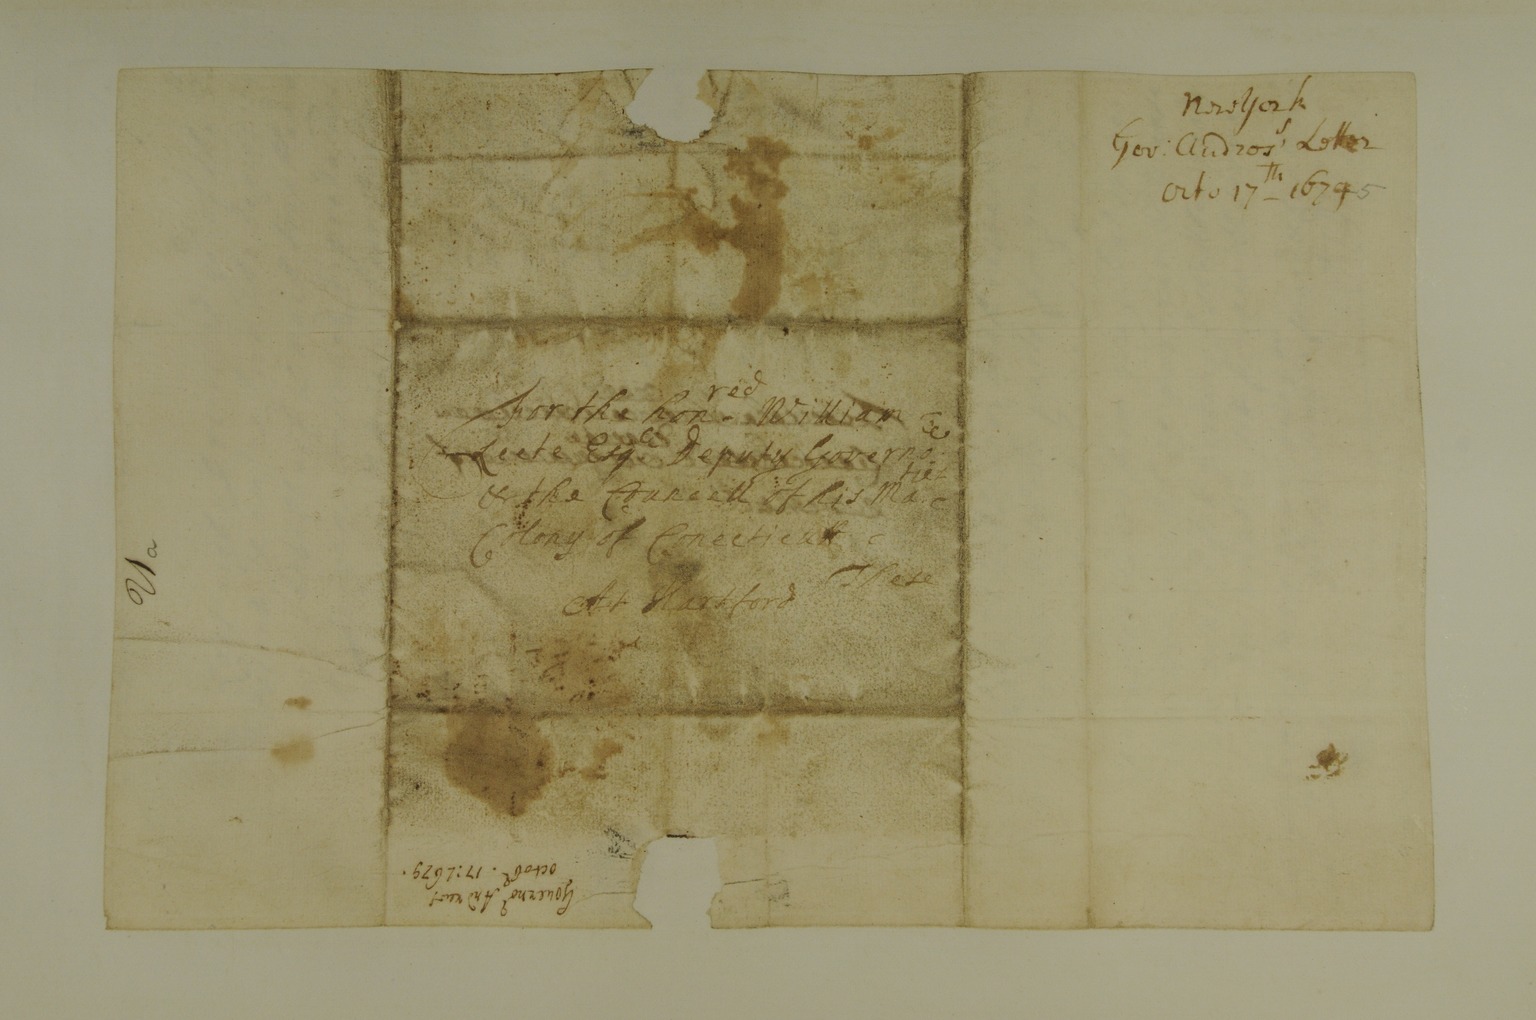 New York
Gov: Andros's Letter
Octo 17th 1675
For the honred William
Leete Esqe Deputy Governo
& the Councell of his Maties
Colony of Conecticutt
These
At Hartford
21a
Governor Andross
Octobr. 17: 1679.